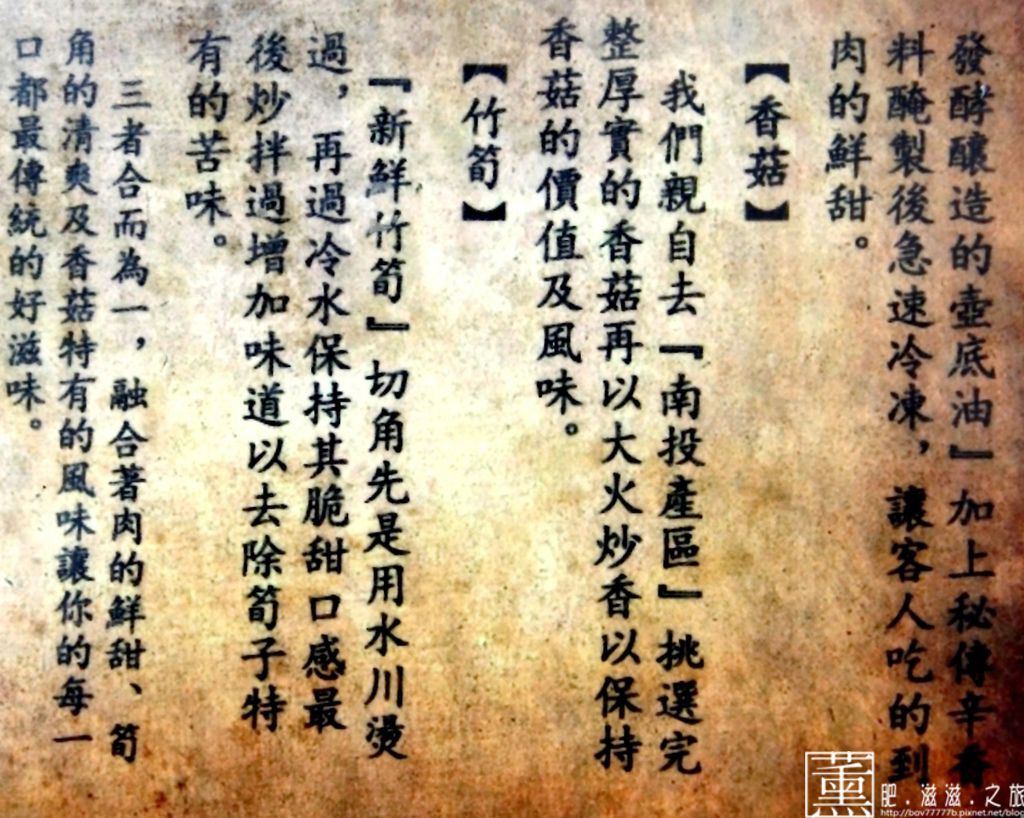 發酵釀造的壺底油』加上秘傳辛香
料醃製後急速冷凍，讓客人吃的到
肉的鮮甜。
【香菇】
我們親自去『南投產區』挑選完
整厚實的香菇再以大火炒香以保持
香菇的價值及風味。
【竹筍】
『新鮮竹筍』切角先是用水川燙
過，再過冷水保持其脆甜口感最
後炒拌過增加味道以去除筍子特
有的苦味。
三者合而為一，融合著肉的鮮甜、筍
角的清爽及香菇特有的風味讓你的每一
口都最傳統的好滋味。
薰
肥.滋滋.之旅
http://bov77777b.pixnet.net/blog